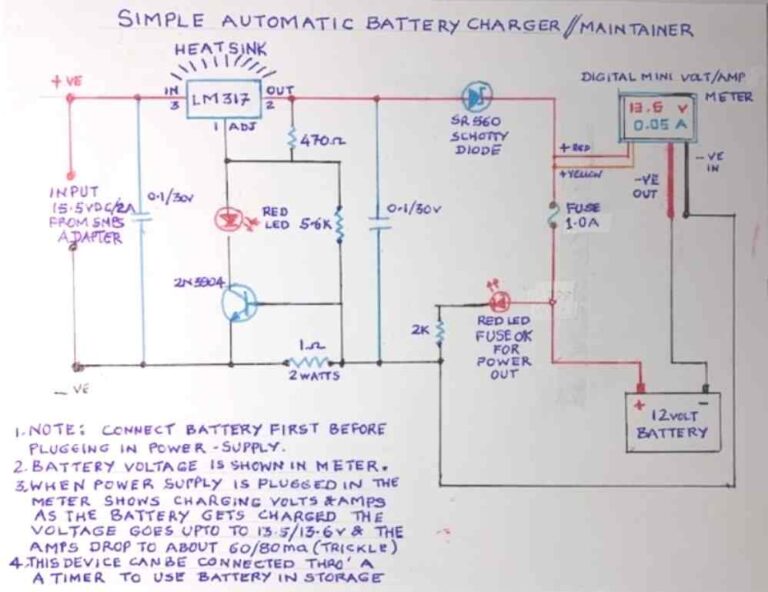 SIMPLE AUTOMATIC BATTERY CHARGER//MAINTAINER
HEATSINK
DIGITAL MINI VOLT/AMP
METER
+VE
IN
3
LM317
OUT
2
1 ADJ
13.5 V
0.05 A
470Ω
SR560
SCHOTTY
DIODE
+RED
+YELLOW
-VE
IN
-VE
OUT
INPUT
15.5VDC/2A
FROM SMPS
ADAPTER
0.1/30V
RED
LED
5.6K
0.1/30V
FUSE
1.0A
2N3904
1Ω
2 WATTS
2K
RED LED
FUSE OK
FOR
POWER
OUT
-VE
+
-
12VOLT
BATTERY
1. NOTE: CONNECT BATTERY FIRST BEFORE
PLUGGING IN POWER-SUPPLY.
2. BATTERY VOLTAGE IS SHOWN IN METER.
3. WHEN POWER SUPPLY IS PLUGGED IN THE
METER SHOWS CHARGING VOLTS & AMPS
AS THE BATTERY GETS CHARGED THE
VOLTAGE GOES UPTO TO 13.5/13.6V & THE
AMPS DROP TO ABOUT 60/80ma (TRICKLE)
4. THIS DEVICE CAN BE CONNECTED THRO' A
A TIMER TO USE BATTERY IN STORAGE